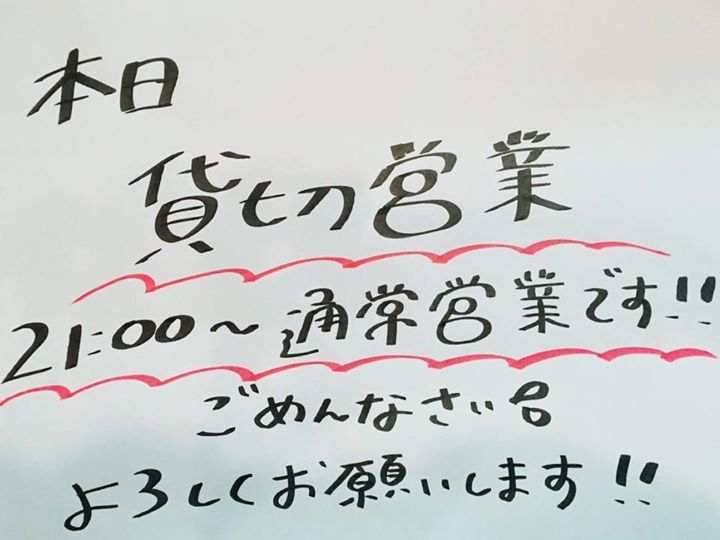 本日
貸切営業
21:00～通常営業です!!
ごめんなさい
よろしくお願いします!!